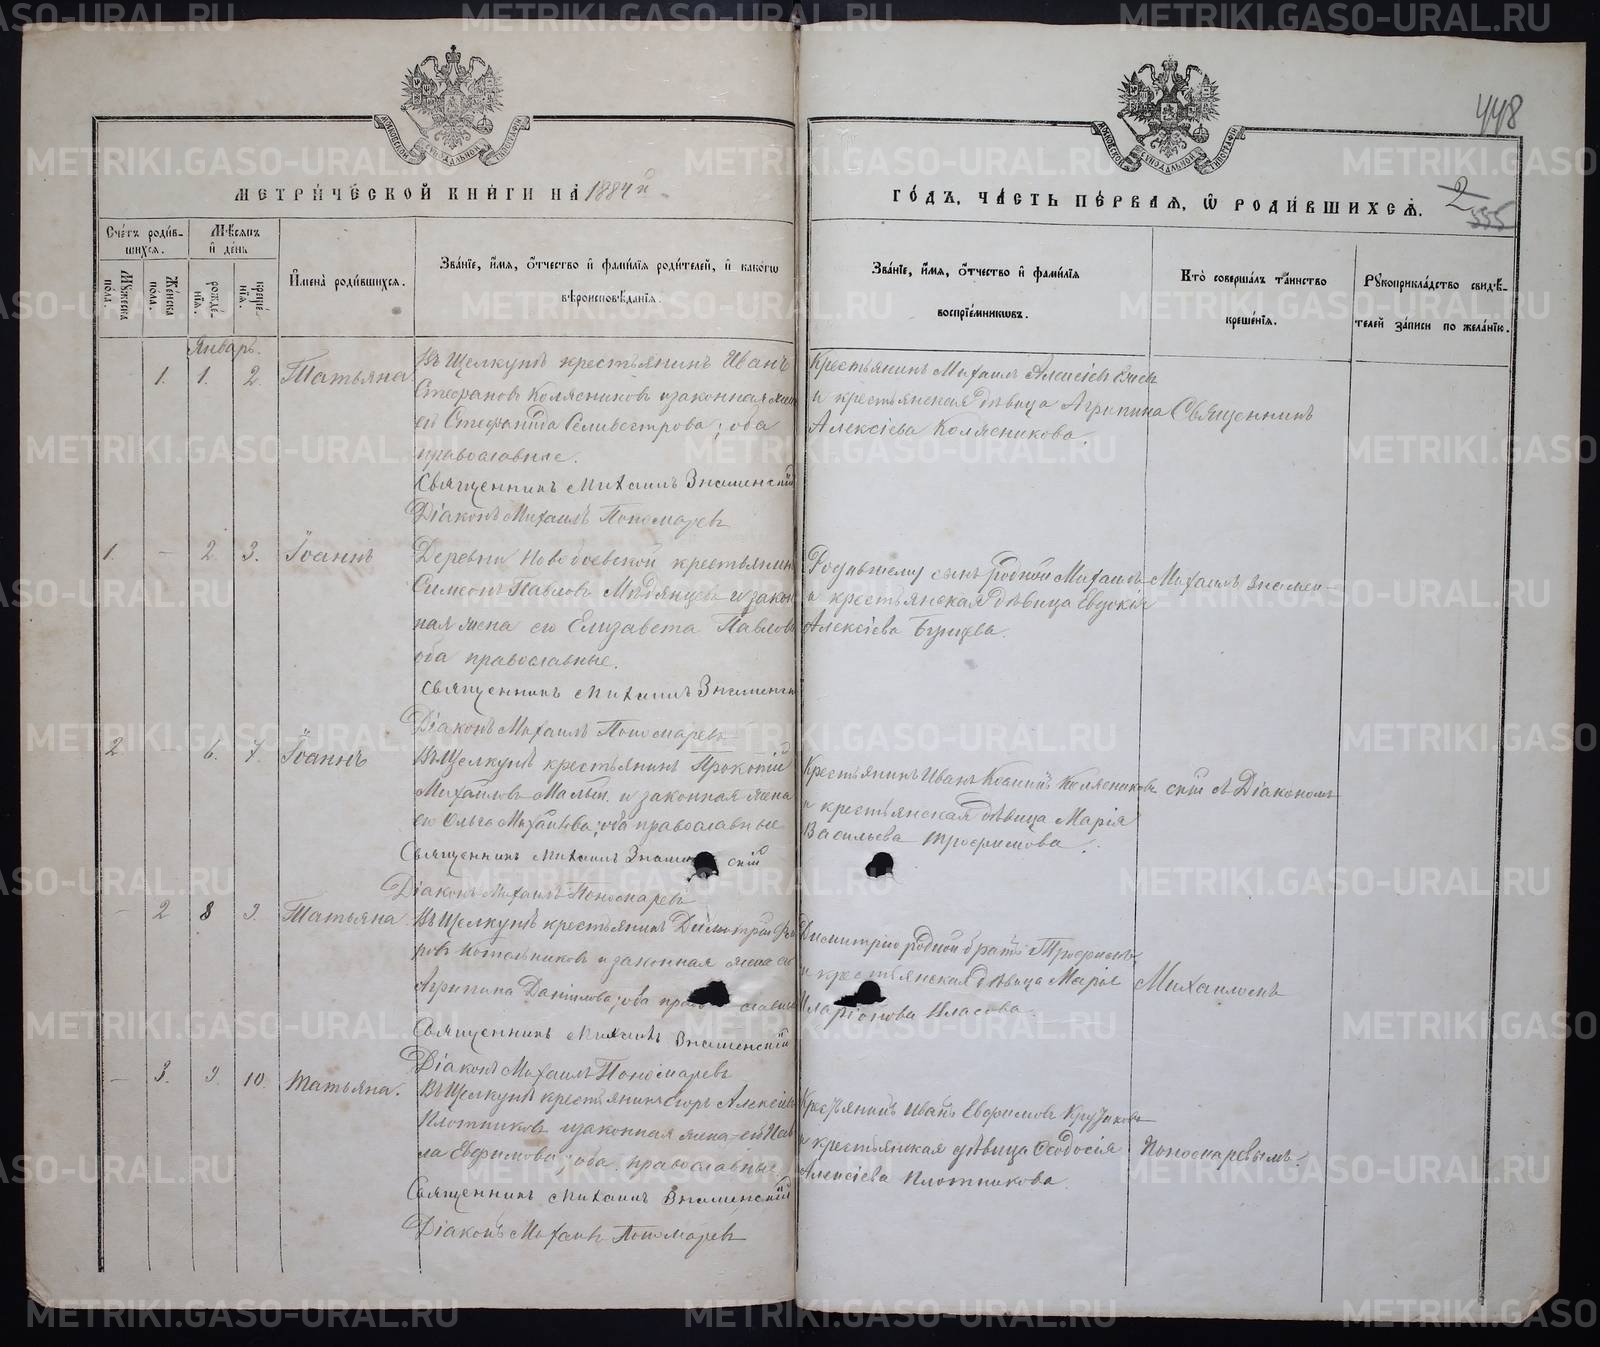 448
МОСКОВСКОЙ СѴНОДАЛЬНОЙ ТИПОГРАФІИ
МОСКОВСКОЙ СѴНОДАЛЬНОЙ ТИПОГРАФІИ
МЕТРИЧЕСКОЙ КНИГИ НА 1884й
ГОДЪ, ЧАСТЬ ПЕРВАЯ, Ѡ РОДИВШИХСЯ.
2
Счетъ родив-
шихся.
Мѣсяцъ
и день
Мужеска
пола.
Женска
пола.
рожде-
нія.
креще-
нія.
Имена родившихся.
Званіе, имя, отчество и фамилія родителей, и какогѡ
вѣроисповѣданія.
Званіе, имя, отчество и фамилія
воспріемникѡвъ.
Кто совершалъ таинство
крещенія.
Рукоприкладство свидѣ-
телей записи по желанію.
Январь.
1. 1. 2. Татьяна
Въ Щелкунѣ крестьянинъ Иванъ
Стефановъ Колясниковъ и законная жена
его Стефанида Селивестрова; оба
православные.
Священникъ Михаилъ Знаменскій
Діаконъ Михаилъ Пономаревъ
Крестьянинъ Михаилъ Алексіевъ
и крестьянская дѣвица Агрипина
Алексіева Колясникова.
Священникъ
1. — 2. 3. Іоаннъ
Деревни Новобоевской крестьянинъ
Симеонъ Павловъ Мѣдянцевъ и закон
ная жена его Елизавета Павлов
оба православные.
Священникъ Михаилъ Знаменск
Діаконъ Михаилъ Пономаревъ
Родившему сынъ родной Михаилъ
и крестьянская дѣвица Евдокія
Алексіева
Михаилъ Знамен-
2 — 6. 7. Іоаннъ
Въ Щелкунѣ крестьянинъ Прокопій
Михайловъ Малый и законная жена
его Ольга Михайлова; оба православные
Священникъ Михаилъ Знаменскій
Діаконъ Михаилъ Пономаревъ
Крестьянинъ Иванъ Колясниковъ
и крестьянская дѣвица Марія
Васильева Трофимова.
скій съ Діакономъ
— 2 8 9. Татьяна
Въ Щелкунѣ крестьянинъ Димитрій
ровъ Котельниковъ и законная жена его
Агрипина Данилова; оба православные
Священникъ Михаилъ Знаменскій
Діаконъ Михаилъ Пономаревъ
Димитрію родной братъ Трофимъ
и крестьянская дѣвица Марія
Иларіонова Власова.
Михаиломъ
— 3. 9. 10. Татьяна.
Въ Щелкунѣ крестьянинъ Егоръ Алексіевъ
Плотниковъ и законная жена его Пав
ла Евфимова; оба православные
Священникъ Михаилъ Знаменскій
Діаконъ Михаилъ Пономаревъ
Крестьянинъ Иванъ Евфимовъ
и крестьянская дѣвица Ѳеодосія
Алексіева Плотникова.
Пономаревымъ.
METRIKI.GASO-URAL.RU